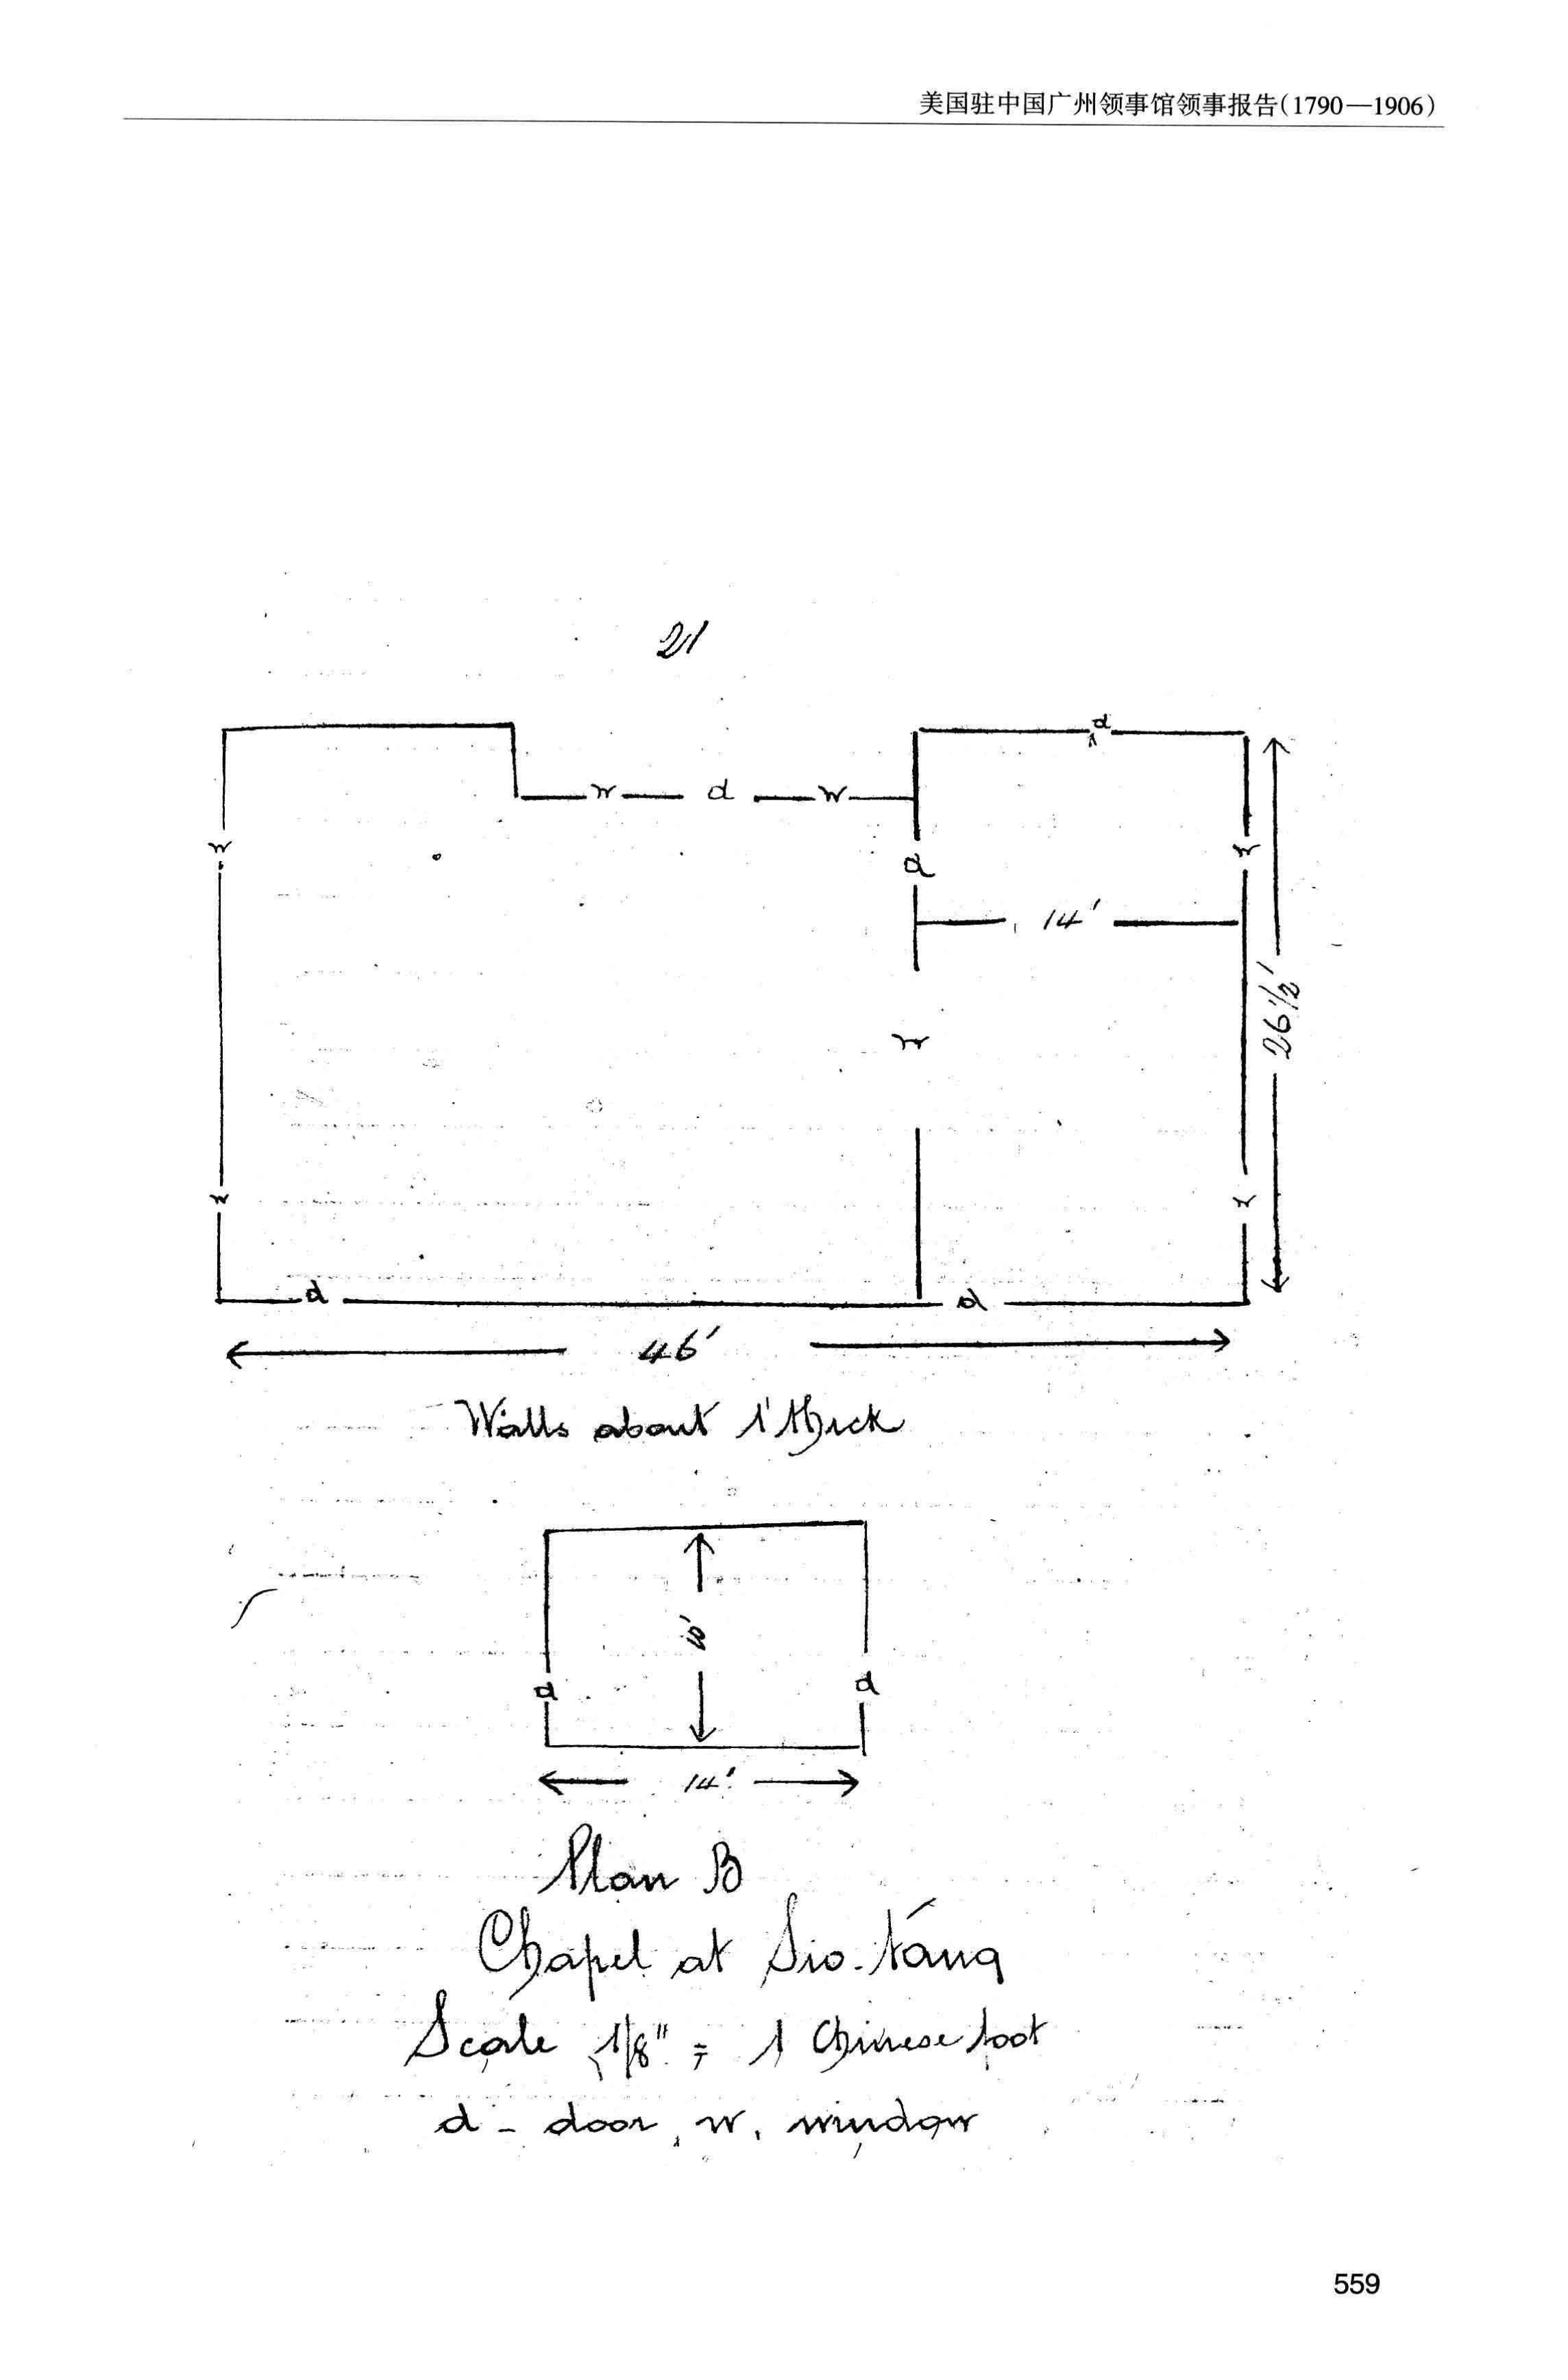 美国驻中国广州领事馆领事报告(1790—1906)
21
d
w d w
w
d
w
14'
26 1/2'
w
w
w
d d
46'
Walls about 1' thick
10'
d d
14'
Plan B
Chapel at Sio-táng
Scale 1/8" = 1 Chinese foot
d - door, w, window
559